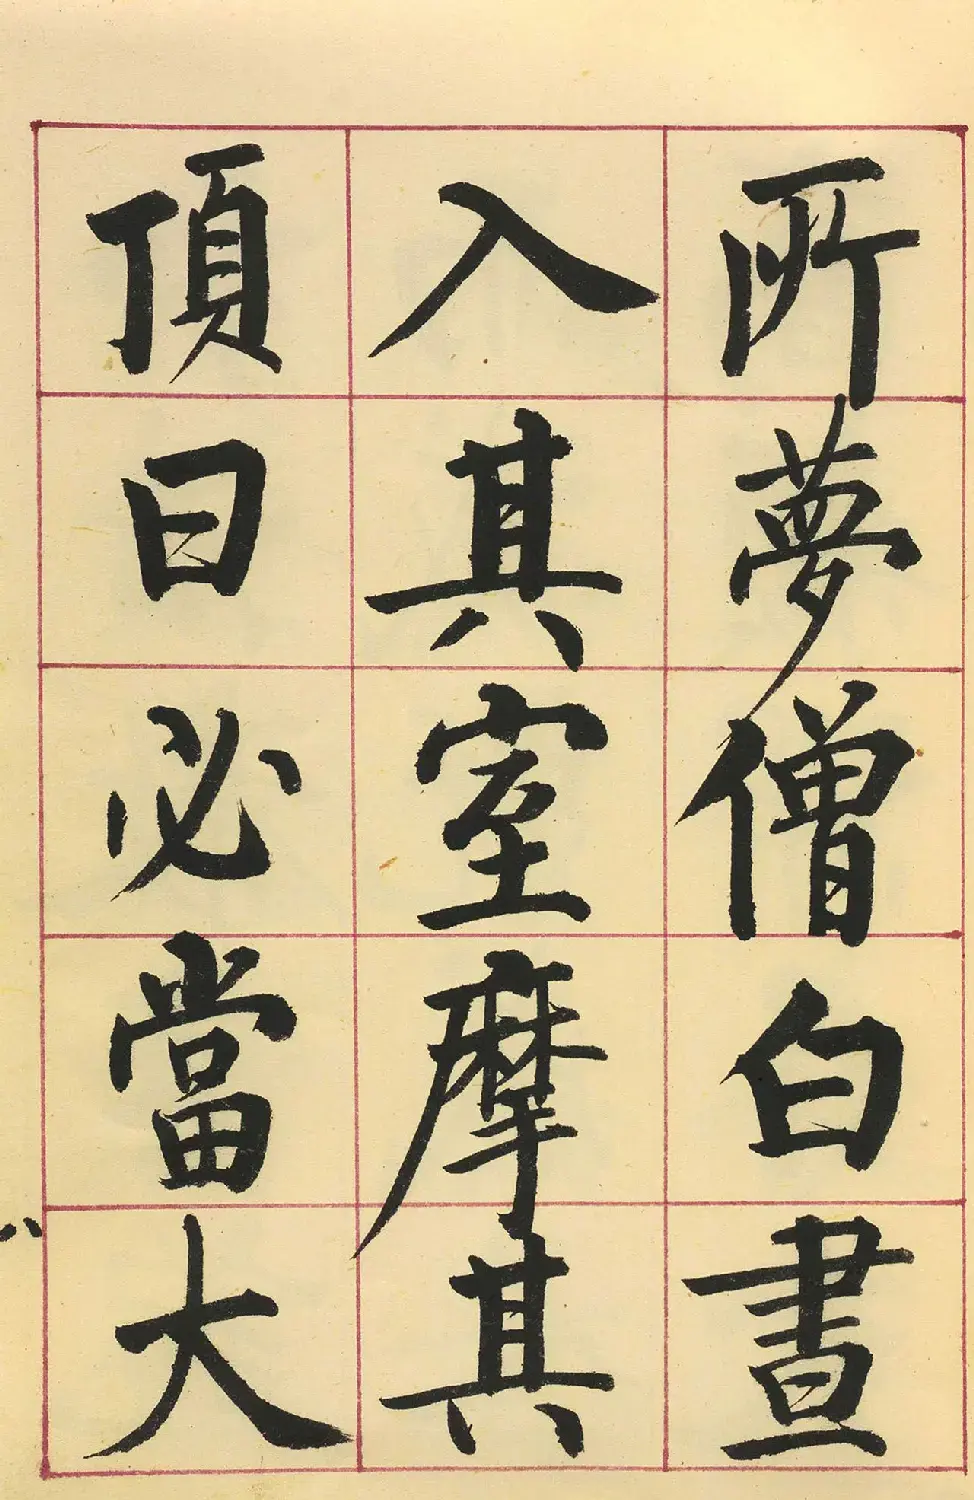 所夢僧白晝
入其室摩其
頂曰必當大